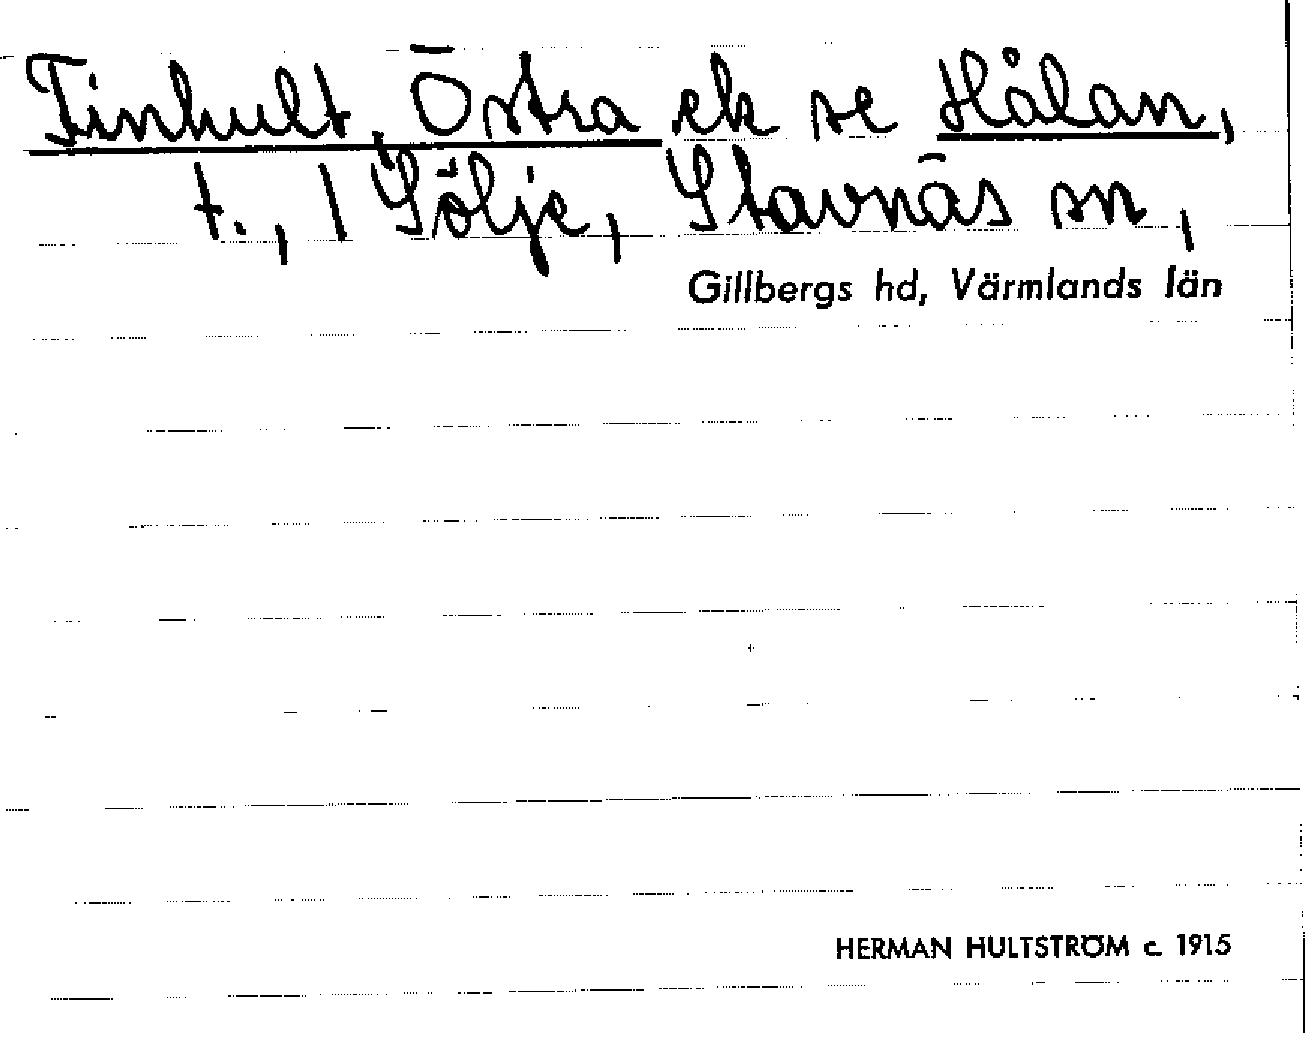 Tinhult, Östra ek se Hålan,
t., 1 Sölje, Stavnäs sn,
Gillbergs hd, Värmlands län
HERMAN HULTSTRÖM c. 1915